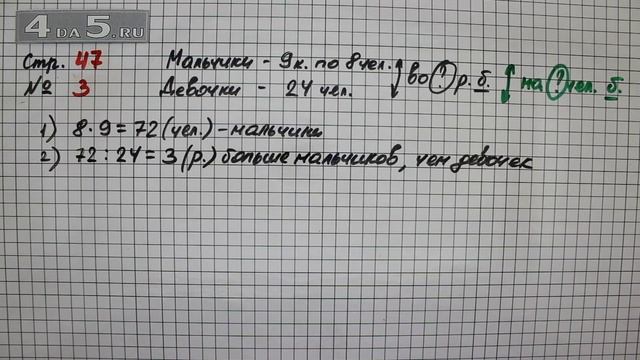 4DA5.RU
Стр. 47 Мальчики - 9к. по 8 чел. во ? р. б. на ? чел. б.
№ 3 Девочки - 24 чел.
1) 8 · 9 = 72 (чел.) - мальчики
2) 72 : 24 = 3 (р.) больше мальчиков, чем девочек